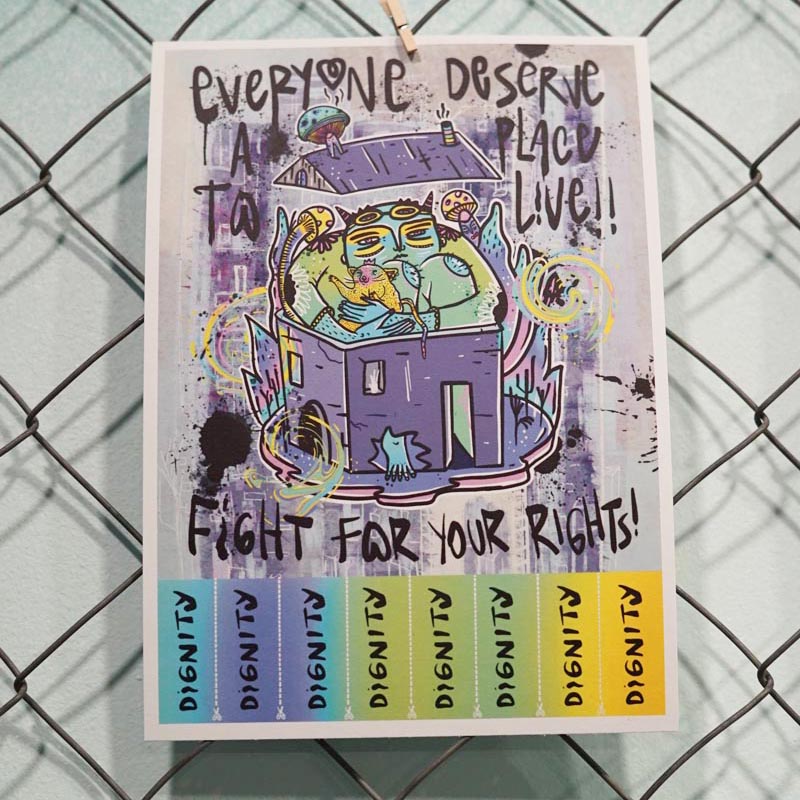 EVERYONE DESERVE
A PLACE
TO LIVE!!
FIGHT FOR YOUR RIGHTS!
DIGNITY
DIGNITY
DIGNITY
DIGNITY
DIGNITY
DIGNITY
DIGNITY
DIGNITY